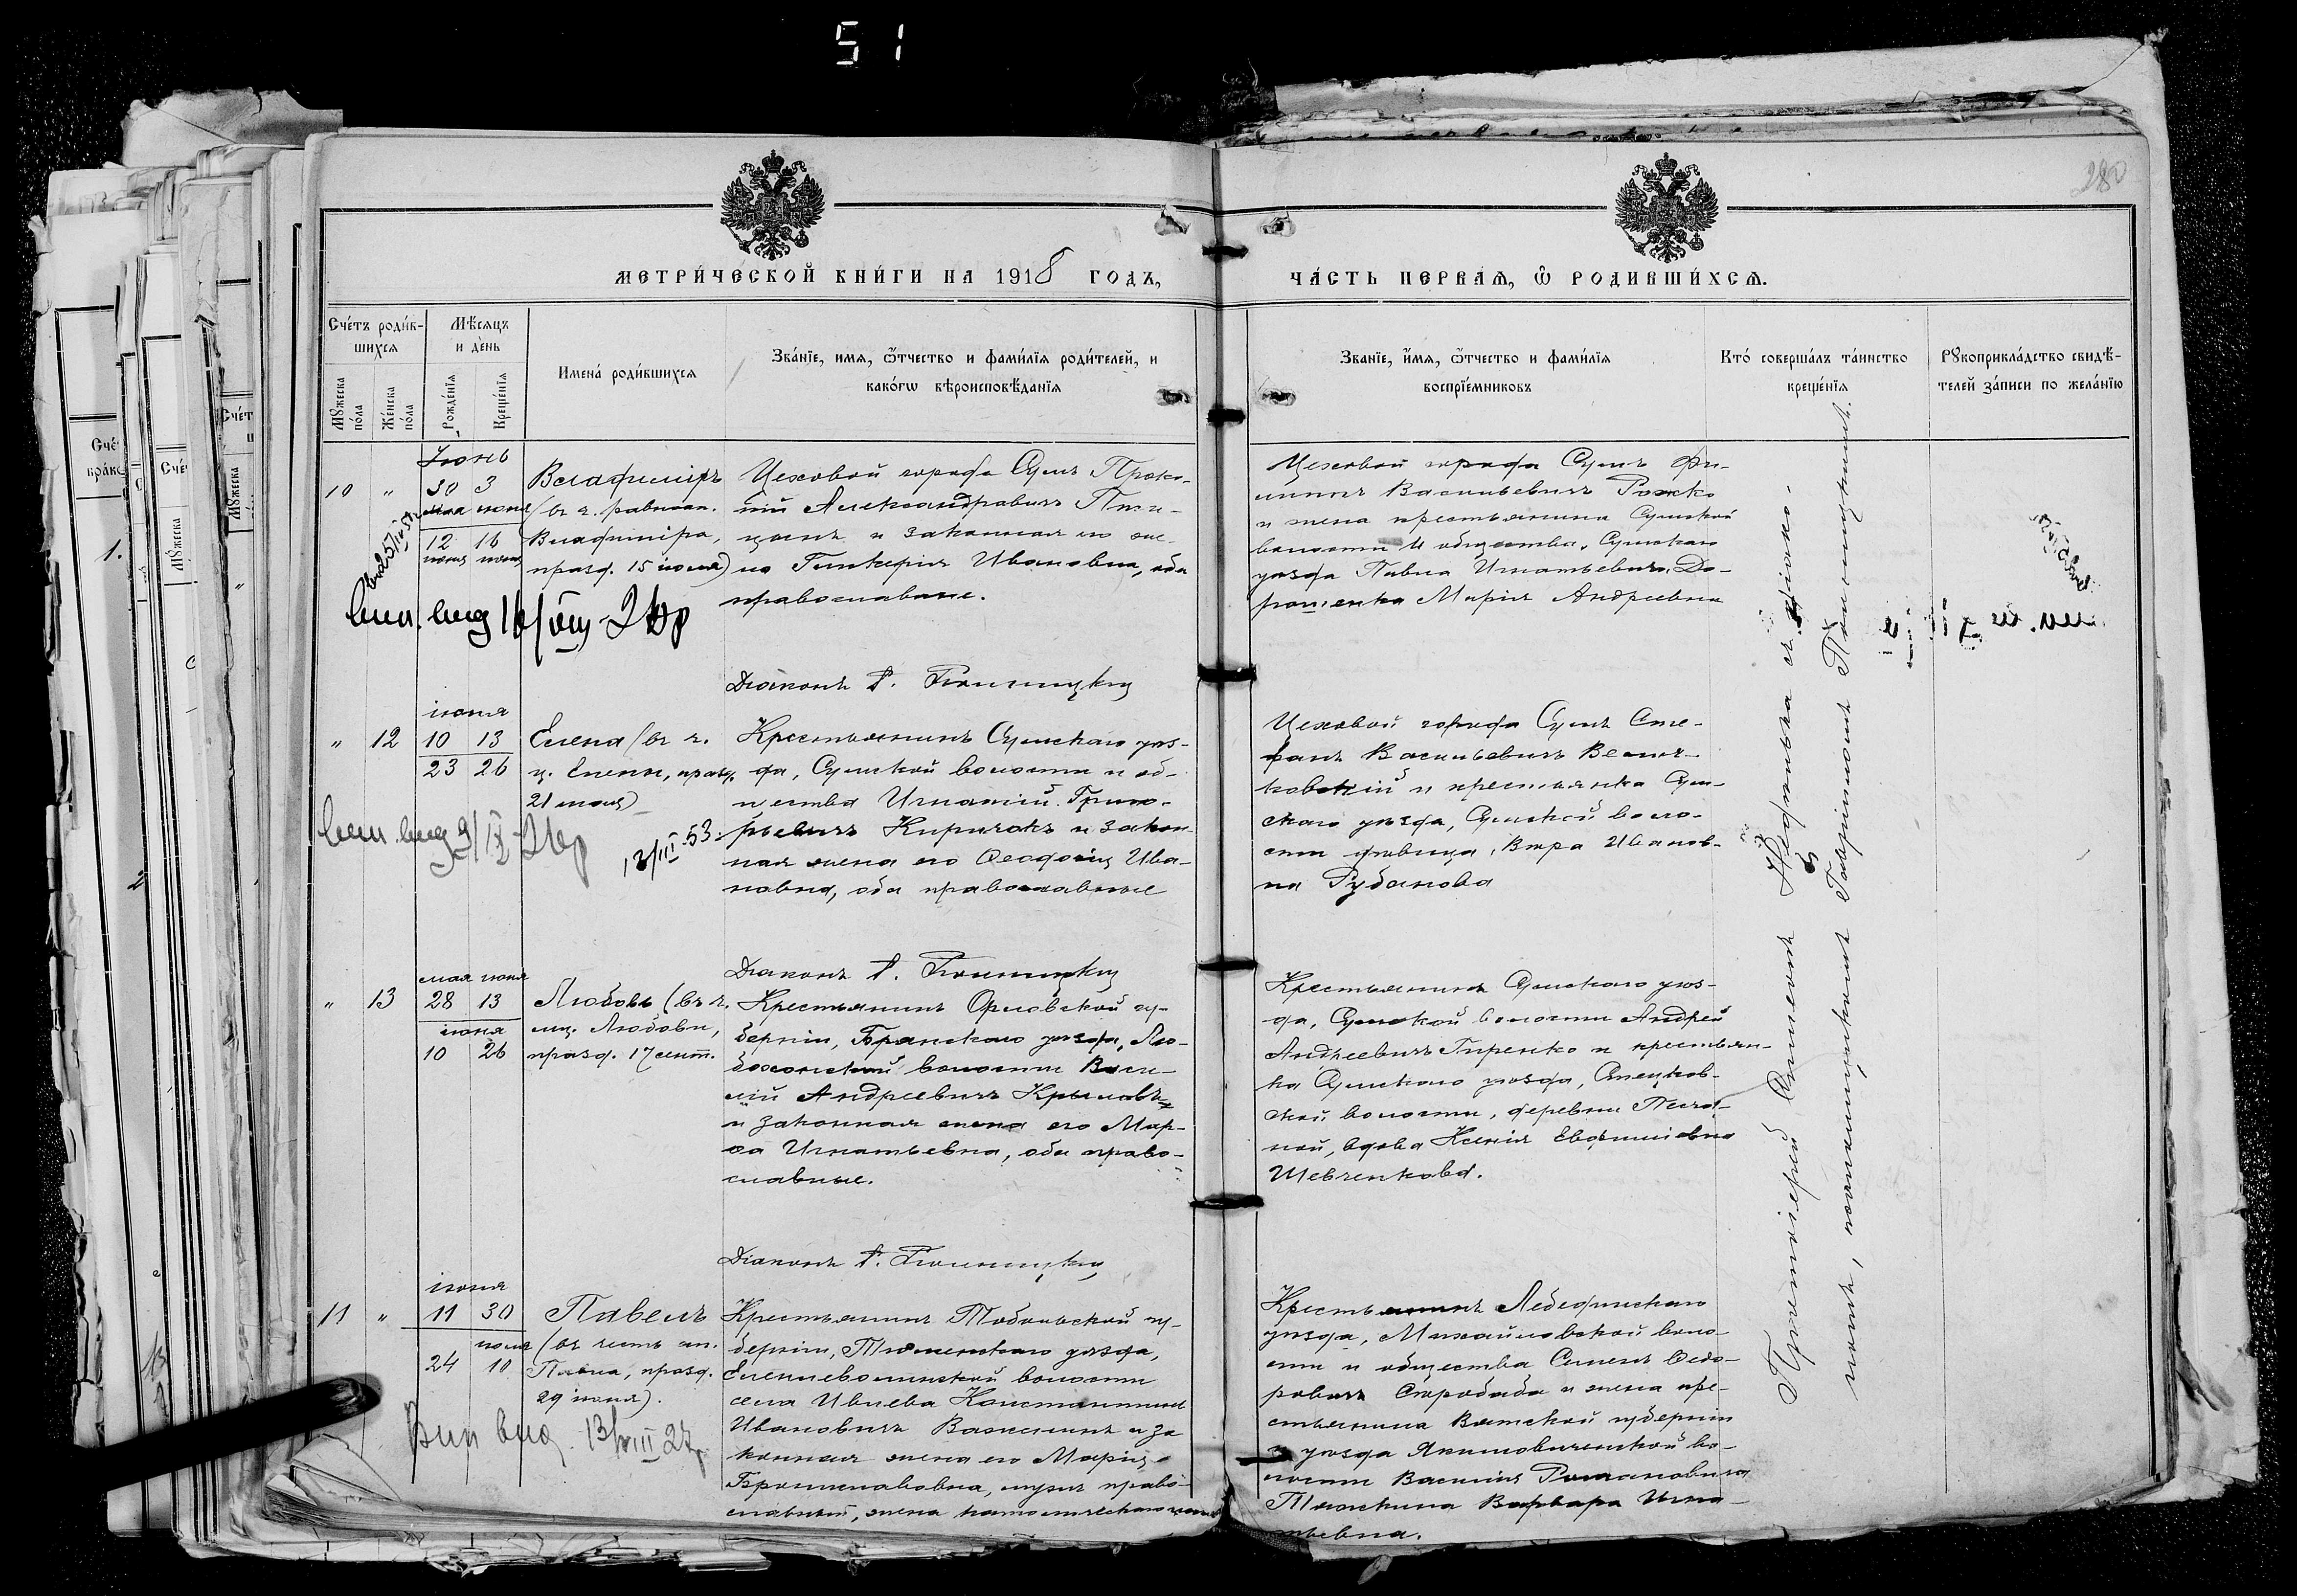 51
280
МЕТРИ́ЧЕСКОЙ КНИ́ГИ НА 1918 ГОДЪ,
ЧА́СТЬ ПЕРВАѦ, Ѡ РОДИВШИ́ХСѦ.
Сче́тъ роди́в-
шихся
Мѣ́сяцъ
и де́нь
Му́жеска
по́ла
Же́нска
по́ла
Рожде́нїя
Креще́нїя
Имена́ роди́вшихся
Зва́нїе, имя, ѻ҆́тчество и фами́лїя роди́телей, и
како́гѡ вѣроисповѣ́данїя
Зва́нїе, и́мя, ѻ҆́тчество и фами́лїя
воспрїе́мниковъ
Кто́ соверша́лъ та́инство
креще́нїя
Рꙋкоприкла́дство свидѣ́-
телей за́писи по жела́нїю
Іюнь
10 " 30 3
мая іюня
12 16
іюня іюня
Владиміръ
(въ ч. равноап.
Владиміра,
празд. 15 іюля)
Цеховой города Сумъ Проко-
пій Александровичъ Пти-
цынъ и законная его же-
на Гликерія Ивановна, оба
православные.
Діаконъ Г. Полницкій
Цеховой города Сумъ Фи-
липпъ Васильевичъ Рожко
и жена крестьянина Сумской
волости и общества, Сумскаго
уѣзда Павла Игнатьевича До-
рошенка Марія Андреевна
іюня
" 12 10 13
23 26
Елена (въ ч.
ц. Елены, празд.
21 мая)
12/III-53.
Крестьянинъ Сумскаго уѣз-
да, Сумской волости и об-
щества Игнатій Григо-
рьевичъ Киричокъ и закон-
ная жена его Ѳеодосія Ива-
новна, оба православные
Діаконъ Г. Полницкій
Цеховой города Сумъ Сте-
фанъ Васильевичъ Велич-
ковскій и крестьянка Сум-
скаго уѣзда, Сумской воло-
сти дѣвица, Вѣра Иванов-
на Рубанова
мая іюня
" 13 28 13
іюня
10 26
Любовь (въ ч.
мц. Любови,
празд. 17 сент.
Крестьянинъ Орловской гу-
берніи, Брянскаго уѣзда, Лю-
бохонской волости Васи-
лій Андреевичъ Крыловъ
и законная жена его Мар-
ѳа Игнатьевна, оба право-
славные.
Діаконъ Г. Полницкій
Крестьянинъ Сумскаго уѣз-
да, Сумской волости Андрей
Андреевичъ Гиренко и крестьян-
ка Сумскаго уѣзда, Стецков-
ской волости, деревни Песча-
ной, вдова Ксенія Евфиміевна
Шевченкова.
іюня
11 " 11 30
іюля
24 10
Павелъ
(въ честь ап.
Павла, празд.
29 іюня).
Крестьянинъ Тобольской гу-
берніи, Тюменскаго уѣзда,
волости
села Ивлева Константинъ
Ивановичъ Важенинъ и за
конная жена его Марія
Брониславовна, мужъ право-
славный, жена католическаго
Крестьянинъ Лебединскаго
уѣзда, Михайловской воло-
сти и общества Симеонъ Ѳедо-
ровичъ Стробаба и жена кре-
стьянина Вятской губерніи
и уѣзда Якимовичевской во-
лости Василія Романовича
Тяжкина Варвара Игна-
тьевна.
Протоіерей Недрыгайло съ діако-
номъ, Гавріиломъ Полницкимъ.